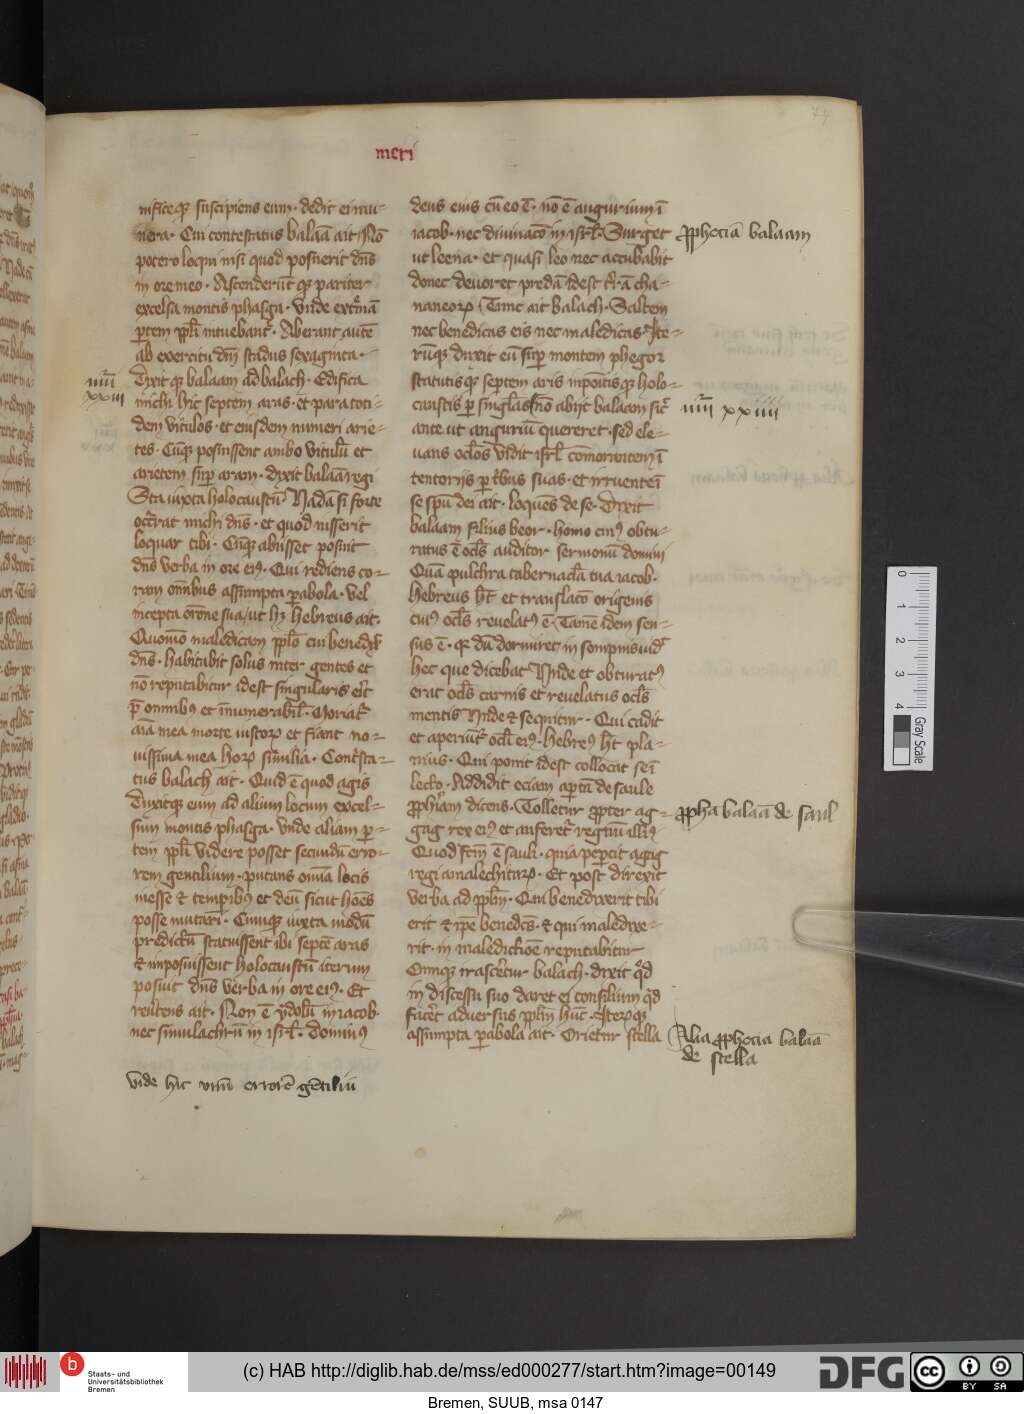 74
meri
nificeqȝ suscipiens eum · dedit ei mu-
nera · Cui contestatus balaā ait Nō
potero loqui nisi quod posuerit dn̄s
in ore meo · Ascenderūt qȝ pariter
excelsa montis phasga · vnde extͣmā
ptem ppl̄i intuebantͬ · Aberant autē
ab exercitu dn̄i stadus sexaginta ·
Dixit qȝ balaam ad balach · Edifica
michi hic septem aras · et para toti-
dem vitulos · et eiusdem numeri arie-
tes · Cūqȝ posuissent ambo vitulū et
arietem sup aram · dixit balaā regi
Sta iuxta holocaustū Nadā si forte
occ̄rrat michi dn̄s · et quod iusserit
loquar tibi · Cūqȝ abiisset posuit
dn̄s verba in ore eiꝰ · Qui rediens co-
ram om̄ibus assumpta pabola · vel
incepta orōne sua / ut hȝ hebreus ait ·
Quom̄o maledicam ppl̄o cui benedx̄
dn̄s · habitabit solus inter gentes et
nō reputabitur idest singularis er̄t
p̄ omnibꝰ et īnumerabil̄ · Moriatͬ
aīa mea morte iustoꝝ et fiant no-
uissima mea hoꝝ similia · Contͬsta-
tus balach ait · Quid ē quod agis
Duxitqȝ eum ad alium locum excel-
sum montis phasga · vnde aliam p-
tem ppl̄i videre posset secundū erro-
rem gentilium · putans om̄ia locis
inesse et temp̄ibꝰ et deū sicut hoēs
posse mutari · Cumqȝ iuxta modū
predictū statuissent ibi septē aras
et imposuissent holocaustū iterum
posuit dn̄s verba in ore eiꝰ · Et
reūtens ait · Non ē ydolū in iacob ·
nec simulachrū in isrl̄ · Dominꝰ
deus eius cū eo ē · nō ē augurium ī
iacob · nec diuinacō in isrl̄ · Surget
ut leena · et quasi leo nec accubabit
donec deuoret predā idest tr̄ā cha-
naneoꝝ Tunc ait balach · Saltem
nec benedicas eis nec maledicas · Ite-
rūqȝ duxit eū sup montem phegor
statutisqȝ septem aris inpoītisqȝ holo-
caustis p singl̄as nō abijt balaam sic̄
ante ut auguriū quereret · sed ele-
uans ocl̄os vidit isrl̄ com̄orantem ī
tentorijs p tͥbus suas · et irruente ī
se spū dei ait · loquēs de se · Dixit
balaam filius beor · homo cuiꝰ obtu-
ratus ē ocl̄s auditor sermonū domini
Quā pulchra tabernacl̄a tua iacob ·
hebreus h̄t et translatō origenis
cuiꝰ ocl̄s reuelatꝰ ē · Tamē idem sen-
sus ē · qꝛ dū dormiret in sompnis uidͭ
hec que dicebat Vnde et obturatꝰ
erat ocl̄s carnis et reuelatus ocl̄s
mentis Vnde et sequitur · Qui cadit
et aperiūtͬ ocl̄i eiꝰ · hebreꝰ h̄t pla-
nius · Qui ponit idest collocat se ī
lecto · Addidit eciam aptā de saule
ꝓph̄iam dicens · Tolletur ꝓpter ag-
gag rex eiꝰ et auferetͬ regnū illiꝰ
Quod fc̄m ē sauli · quia peperit agag
regi amalechitaꝝ · Et post direxit
verba ad ppl̄m · Qui benedixerit tibi
erit et ip̄e benedc̄s · et qui maledixe-
rit · in maledictiōe reputabitur
Cumqȝ irascetur balach · dixit qͦd
in discessu suo daret ei consilium qͦd
facēt aduersus ppl̄m hūc · Iterꝝ qȝ
assumpta pabola ait · Orietur stella
nūi
xxiii
ꝓphocia balaam
nūi xxiiii
ꝓphā balaā de saul
Alia ꝓphecia balaā
de stella
vide hic vnū errorē gētiliū
0 1 2 3 4
Gray Scale
b
Staats- und
Universitätsbibliothek
Bremen
(c) HAB http://diglib.hab.de/mss/ed000277/start.htm?image=00149
DFG
cc BY SA
Bremen, SUUB, msa 0147